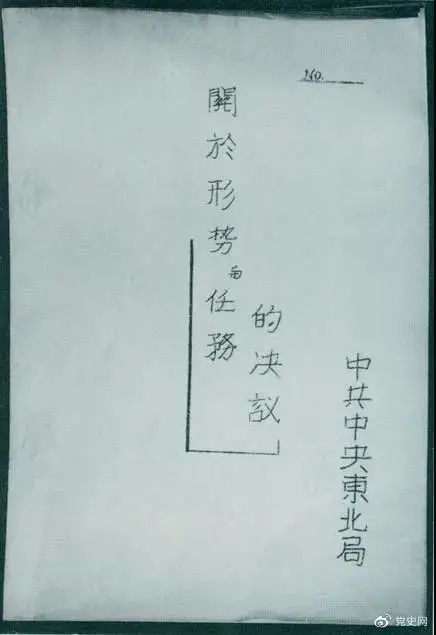 NO.
關於形势与任務
的决议
中共中央東北局
党史网